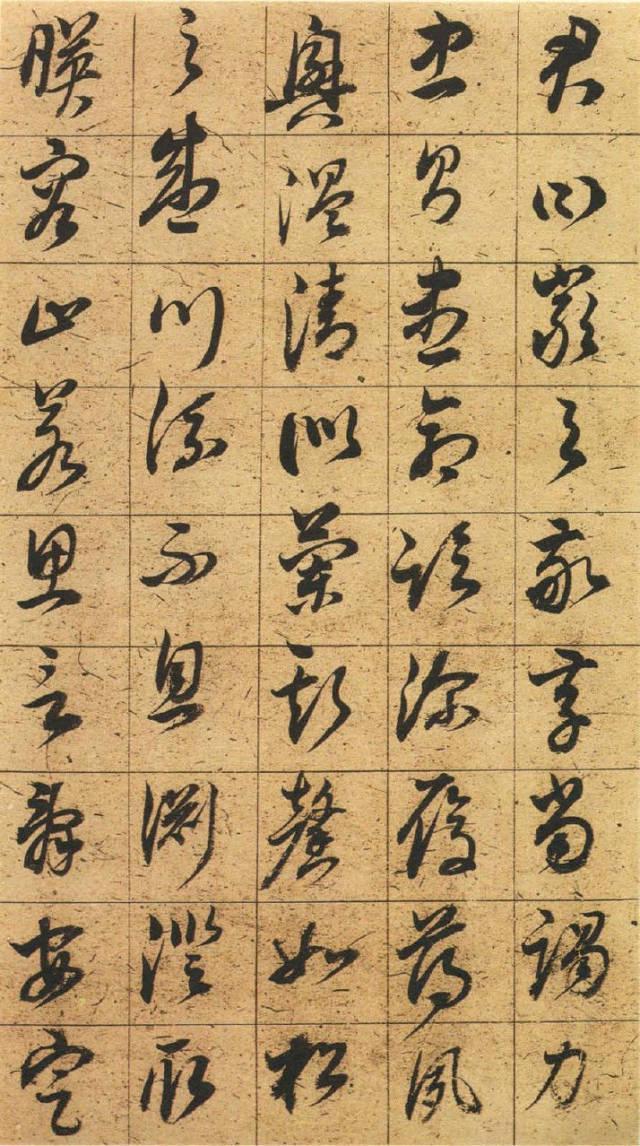 君曰嚴與敬孝當竭力
忠則盡命臨深履薄夙
興溫清似蘭斯馨如松
之盛川流不息淵澄取
映容止若思言辭安定